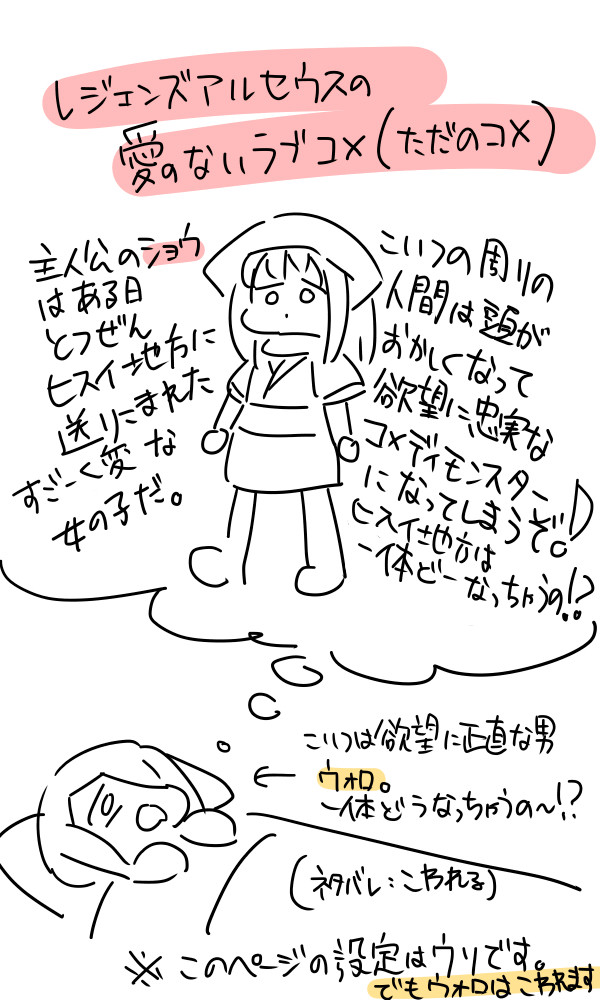 レジェンズアルセウスの
愛のないラブコメ(ただのコメ)
主人公のショウ
はある日
とつぜん
ヒスイ地方に
送りこまれた
すごーく変な
女の子だ。
こいつの周りの
人間は頭が
おかしくなって
欲望に忠実な
コメディモンスター
になってしまうぞ。♪
ヒスイ地方は
一体どーなっちゃうの!?
こいつは欲望に正直な男
←ウォロ。
一体どうなっちゃうの〜!?
(ネタバレ:こわれる)
※このページの設定はウソです。
でもウォロはこわれます